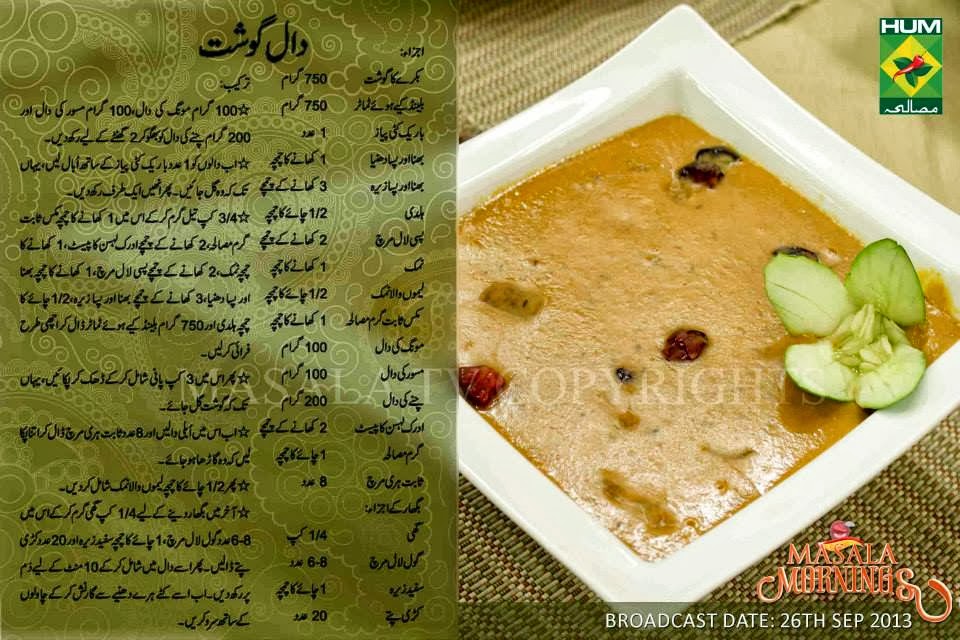 دال گوشت
اجزاء:
بکرے کا گوشت 750 گرام
بلینڈ کیے ہوئے ٹماٹر 750 گرام
باریک کٹی پیاز 1 عدد
بھنا اور پسا دھنیا 1 کھانے کا چمچہ
بھنا اور پسا زیرہ 3 کھانے کے چمچے
ہلدی 1/2 چائے کا چمچہ
پسی لال مرچ 2 کھانے کے چمچے
نمک 1 کھانے کا چمچہ
لیموں والا نمک 1/2 چائے کا چمچہ
مکس ثابت گرم مصالحہ 1 کھانے کا چمچہ
مونگ کی دال 100 گرام
مسور کی دال 100 گرام
چنے کی دال 200 گرام
ادرک لہسن کا پیسٹ 2 کھانے کے چمچے
گرم مصالحہ 1 چائے کا چمچہ
ثابت ہری مرچ 8 عدد
بگھار کے اجزاء:
گھی 1/4 کپ
گول لال مرچ 6-8 عدد
سفید زیرہ 1 چائے کا چمچہ
کڑی پتے 20 عدد
ترکیب:
☆ 100 گرام مونگ کی دال، 100 گرام مسور کی دال اور
200 گرام چنے کی دال کو بھگو کر 2 گھنٹے کے لیے رکھ دیں۔
☆ اب دالوں کو 1 عدد باریک کٹی پیاز کے ساتھ اُبال لیں، یہاں
تک کہ وہ گل جائیں۔ پھر انھیں ایک طرف رکھ دیں۔
☆ 3/4 کپ تیل گرم کرکے اس میں 1 کھانے کا چمچہ مکس ثابت
گرم مصالحہ، 2 کھانے کے چمچے ادرک لہسن کا پیسٹ، 1 کھانے کا
چمچہ نمک، 2 کھانے کے چمچے پسی لال مرچ، 1 کھانے کا چمچہ بھنا
اور پسا دھنیا، 3 کھانے کے چمچے بھنا اور پسا زیرہ، 1/2 چائے کا
چمچہ ہلدی اور 750 گرام بلینڈ کیے ہوئے ٹماٹر ڈال کر اچھی طرح
فرائی کرلیں۔
☆ پھر اس میں 3 کپ پانی شامل کرکے ڈھک کر پکائیں، یہاں
تک کہ گوشت گل جائے۔
☆ اب اس میں اُبلی دالیں اور 8 عدد ثابت ہری مرچ ڈال کر اتنا پکا
لیں کہ وہ گاڑھا ہوجائے۔
☆ پھر 1/2 چائے کا چمچہ لیموں والا نمک شامل کردیں۔
☆ آخر میں بگھار دینے کے لیے 1/4 کپ گھی گرم کرکے اس میں
6-8 عدد گول لال مرچ، 1 چائے کا چمچہ سفید زیرہ اور 20 عدد کڑی
پتے ڈالیں۔ پھر اسے دال میں شامل کرکے 10 منٹ کے لیے دَم
پر رکھ دیں۔ اب اسے کٹے ہرے دھنیے سے گارنش کرکے چاولوں
کے ساتھ سرو کریں۔
HUM
مصالحہ
MASALA TV COPYRIGHTS
MASALA
MORNINGS
BROADCAST DATE: 26TH SEP 2013